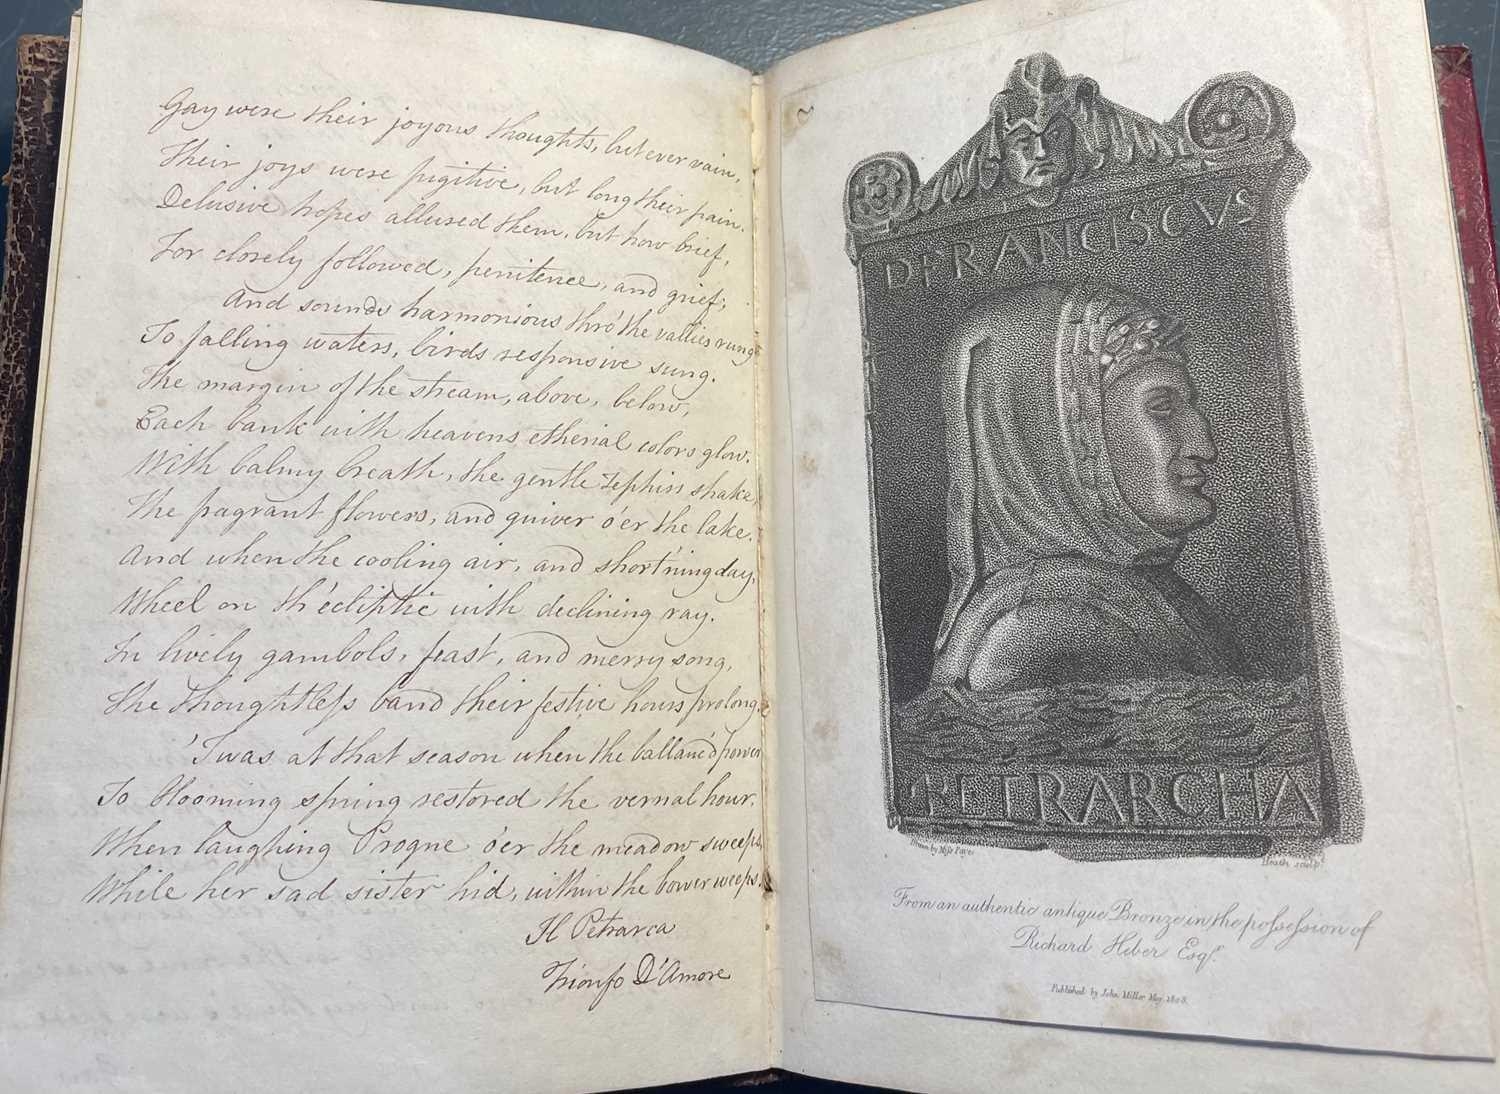 Gay were their joyous thoughts, but ever vain,
Their joys were fugitive, but long their pain.
Delusive hopes allured them, but how brief,
For closely followed, penitence, and grief;
And sounds harmonious thro' the vallies rung
To falling waters, birds responsive sung.
The margin of the stream, above, below,
Each bank with heavens etherial colors glow.
With balmy breath, the gentle Zephirs shake,
The fragrant flowers, and quiver o'er the lake.
And when the cooling air, and short'ning day,
Wheel on th'ecliptic with declining ray.
In lively gambols, feast, and merry song,
The thoughtless band their festive hours prolong.
'Twas at that season when the ballanc'd power
To blooming spring restored the vernal hour.
When laughing Progne o'er the meadow sweeps,
While her sad sister hid, within the bower weeps.
Il Petrarca
Trionfo D'Amore
D FRANCISCVS
PETRARCHA
Drawn by Miss Paye
Heath sculp.
From an authentic antique Bronze in the possession of
Richard Heber Esqr.
Published by John Miller May 1808.